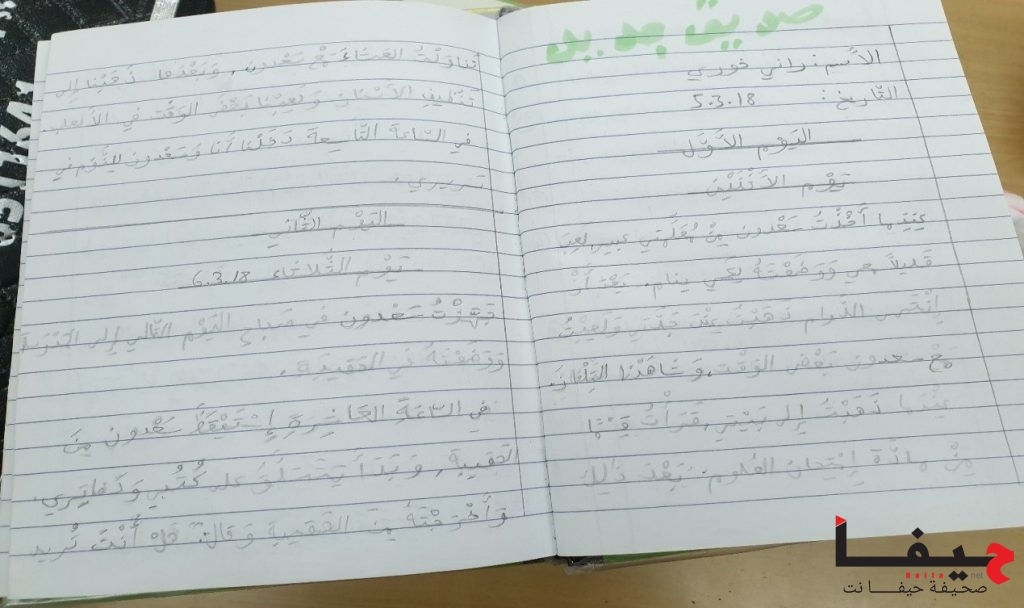 صديق جديد
الاسم: راني خوري
التّاريخ: 5.3.18
اليَوْم الأَوَّل
يَوْم الأَثْنَيْن
عِنْدَما أَخَذْتُ سَعْدون مِنْ مُعَلِّمَتي عبير، لعِبَ
قَليلاً مَعي وَوَضَعْتَهُ لِكَي ينام. بَعْد أَنْ
اِنْتَهى الدَّوام ذَهَبْتُ عِنْدَ جَدَّتي وَلَعِبْتُ
مَعَ سعدون بَعْض الوَقْت، وَشاهَدْنا التِّلْفاز.
عِنْدَما ذَهَبْتُ إلى بَيْتي، قَرَأْتُ
مِنْ مادَّة اِمْتِحان العُلوم. بَعْدَ ذلِكَ
تَناوَلْتُ العَشاءَ مَعْ سَعْدون، وَبَعْدَها ذَهَبْنا إلى
تَنْظيف الأَسْنان وَلَعِبْنا بَعْضَ الوَقْت في الأَلْعاب.
في السّاعَة التّاسِعة دَخَلْنا أَنا وَسَعْدون لِلنَّوْم في
سَريري.
اليَوْم الثّاني
يَوْم الثُّلاثاء 6.3.18
جَهَّزْتُ سَعْدون في صَباح اليَوْم التّالي إلى المَدْرَسَة
وَوَضَعْتَهُ في الحَقيبَة.
في السّاعَة العَاشِرَة إِسْتَيْقَظَ سَعْدون مِنَ
الحَقيبة، وَبَدَأَ يَتَسَلَّقُ على كُتُبي وَدَفاتِري.
وَأَخْرَجْتَهُ مِنَ الحَقيبة وَقالَ: هَلْ أَنْتَ تُريد
حيفا
Haifa.net
صحيفة حيفا نت